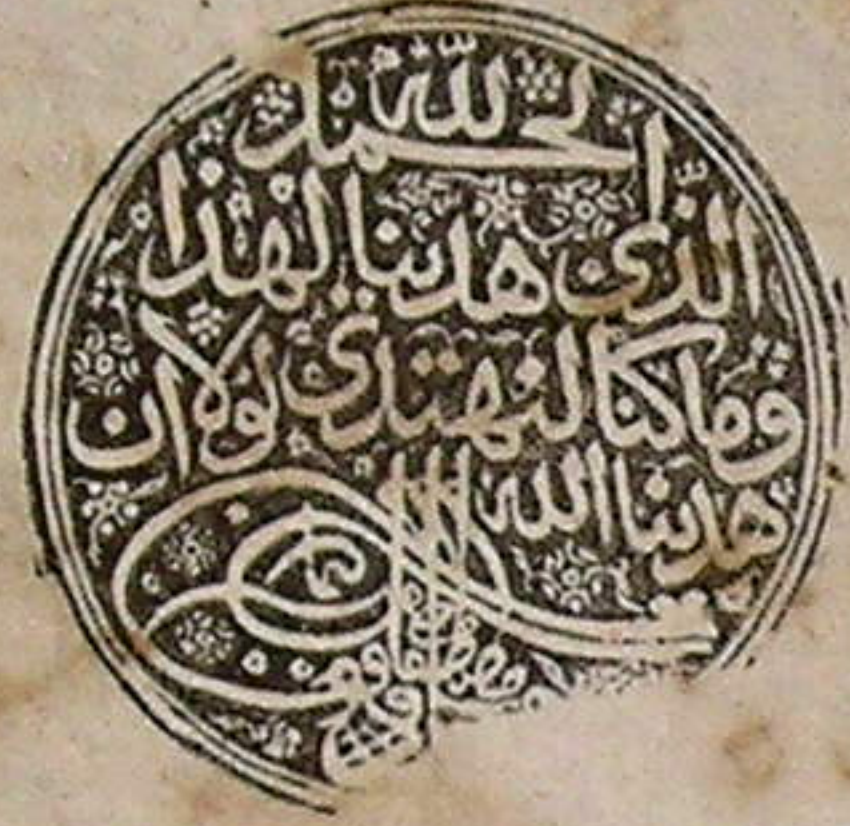 الحمد لله
الذى هدينا لهذا
وما كنا لنهتدي لولا ان
هدينا الله
مصطفى